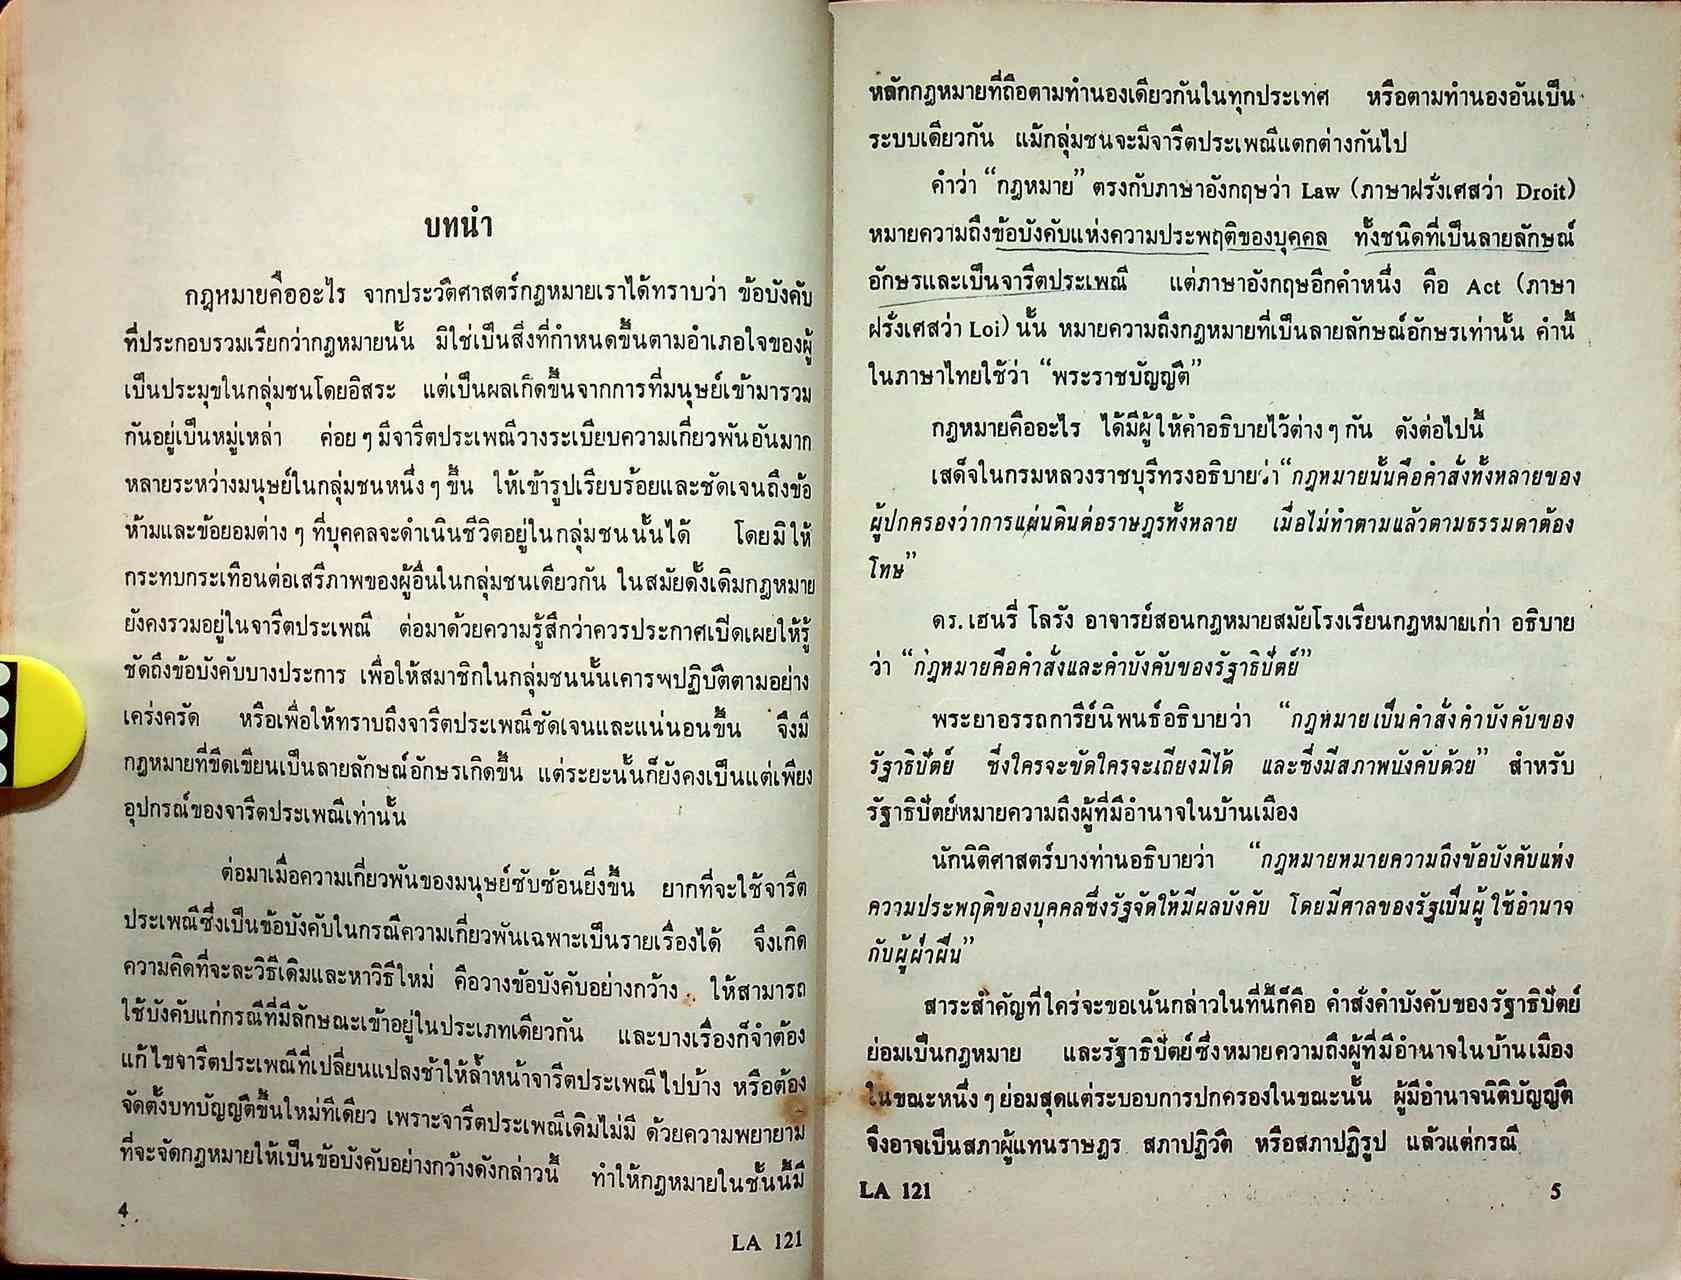 บทนำ
กฎหมายคืออะไร จากประวัติศาสตร์กฎหมายเราได้ทราบว่า ข้อบังคับ
ที่ประกอบรวมเรียกว่ากฎหมายนั้น มิใช่เป็นสิ่งที่กำหนดขึ้นตามอำเภอใจของผู้
เป็นประมุขในกลุ่มชนโดยอิสระ แต่เป็นผลเกิดขึ้นจากการที่มนุษย์เข้ามารวม
กันอยู่เป็นหมู่เหล่า ค่อย ๆ มีจารีตประเพณีวางระเบียบความเกี่ยวพันอันมาก
หลายระหว่างมนุษย์ในกลุ่มชนหนึ่ง ๆ ขึ้น ให้เข้ารูปเรียบร้อยและชัดเจนถึงข้อ
ห้ามและข้อยอมต่าง ๆ ที่บุคคลจะดำเนินชีวิตอยู่ในกลุ่มชนนั้นได้ โดยมิให้
กระทบกระเทือนต่อเสรีภาพของผู้อื่นในกลุ่มชนเดียวกัน ในสมัยดั้งเดิมกฎหมาย
ยังคงรวมอยู่ในจารีตประเพณี ต่อมาด้วยความรู้สึกว่าควรประกาศเปิดเผยให้รู้
ชัดถึงข้อบังคับบางประการ เพื่อให้สมาชิกในกลุ่มชนนั้นเคารพปฏิบัติตามอย่าง
เคร่งครัด หรือเพื่อให้ทราบถึงจารีตประเพณีชัดเจนและแน่นอนขึ้น จึงมี
กฎหมายที่ขีดเขียนเป็นลายลักษณ์อักษรเกิดขึ้น แต่ระยะนั้นก็ยังคงเป็นแต่เพียง
อุปกรณ์ของจารีตประเพณีเท่านั้น
ต่อมาเมื่อความเกี่ยวพันของมนุษย์ซับซ้อนยิ่งขึ้น ยากที่จะใช้จารีต
ประเพณีซึ่งเป็นข้อบังคับในกรณีความเกี่ยวพันเฉพาะเป็นรายเรื่องได้ จึงเกิด
ความคิดที่จะละวิธีเดิมและหาวิธีใหม่ คือวางข้อบังคับอย่างกว้าง ให้สามารถ
ใช้บังคับแก่กรณีที่มีลักษณะเข้าอยู่ในประเภทเดียวกัน และบางเรื่องก็จำต้อง
แก้ไขจารีตประเพณีที่เปลี่ยนแปลงช้าให้ล้ำหน้าจารีตประเพณีไปบ้าง หรือต้อง
จัดตั้งบทบัญญัติขึ้นใหม่ทีเดียว เพราะจารีตประเพณีเดิมไม่มี ด้วยความพยายาม
ที่จะจัดกฎหมายให้เป็นข้อบังคับอย่างกว้างดังกล่าวนี้ ทำให้กฎหมายในชั้นนี้มี
4
LA 121
หลักกฎหมายที่ถือตามทำนองเดียวกันในทุกประเทศ หรือตามทำนองอันเป็น
ระบบเดียวกัน แม้กลุ่มชนจะมีจารีตประเพณีแตกต่างกันไป
คำว่า “กฎหมาย” ตรงกับภาษาอังกฤษว่า Law (ภาษาฝรั่งเศสว่า Droit)
หมายความถึงข้อบังคับแห่งความประพฤติของบุคคล ทั้งชนิดที่เป็นลายลักษณ์
อักษรและเป็นจารีตประเพณี แต่ภาษาอังกฤษอีกคำหนึ่ง คือ Act (ภาษา
ฝรั่งเศสว่า Loi) นั้น หมายความถึงกฎหมายที่เป็นลายลักษณ์อักษรเท่านั้น คำนี้
ในภาษาไทยใช้ว่า “พระราชบัญญัติ”
กฎหมายคืออะไร ได้มีผู้ให้คำอธิบายไว้ต่าง ๆ กัน ดังต่อไปนี้
เสด็จในกรมหลวงราชบุรีทรงอธิบายว่า “กฎหมายนั้นคือคำสั่งทั้งหลายของ
ผู้ปกครองว่าการแผ่นดินต่อราษฎรทั้งหลาย เมื่อไม่ทำตามแล้วตามธรรมดาต้อง
โทษ”
ดร. เฮนรี่ โลรัง อาจารย์สอนกฎหมายสมัยโรงเรียนกฎหมายเก่า อธิบาย
ว่า “กฎหมายคือคำสั่งและคำบังคับของรัฐาธิปัตย์”
พระยาอรรถการีย์นิพนธ์อธิบายว่า “กฎหมายเป็นคำสั่งคำบังคับของ
รัฐาธิปัตย์ ซึ่งใครจะขัดใครจะเถียงมิได้ และซึ่งมีสภาพบังคับด้วย” สำหรับ
รัฐาธิปัตย์หมายความถึงผู้ที่มีอำนาจในบ้านเมือง
นักนิติศาสตร์บางท่านอธิบายว่า “กฎหมายหมายความถึงข้อบังคับแห่ง
ความประพฤติของบุคคลซึ่งรัฐจัดให้มีผลบังคับ โดยมีศาลของรัฐเป็นผู้ใช้อำนาจ
กับผู้ฝ่าฝืน”
สาระสำคัญที่ใคร่จะขอเน้นกล่าวในที่นี้ก็คือ คำสั่งคำบังคับของรัฐาธิปัตย์
ย่อมเป็นกฎหมาย และรัฐาธิปัตย์ซึ่งหมายความถึงผู้ที่มีอำนาจในบ้านเมือง
ในขณะหนึ่ง ๆ ย่อมสุดแต่ระบอบการปกครองในขณะนั้น ผู้มีอำนาจนิติบัญญัติ
จึงอาจเป็นสภาผู้แทนราษฎร สภาปฏิวัติ หรือสภาปฏิรูป แล้วแต่กรณี
LA 121
5